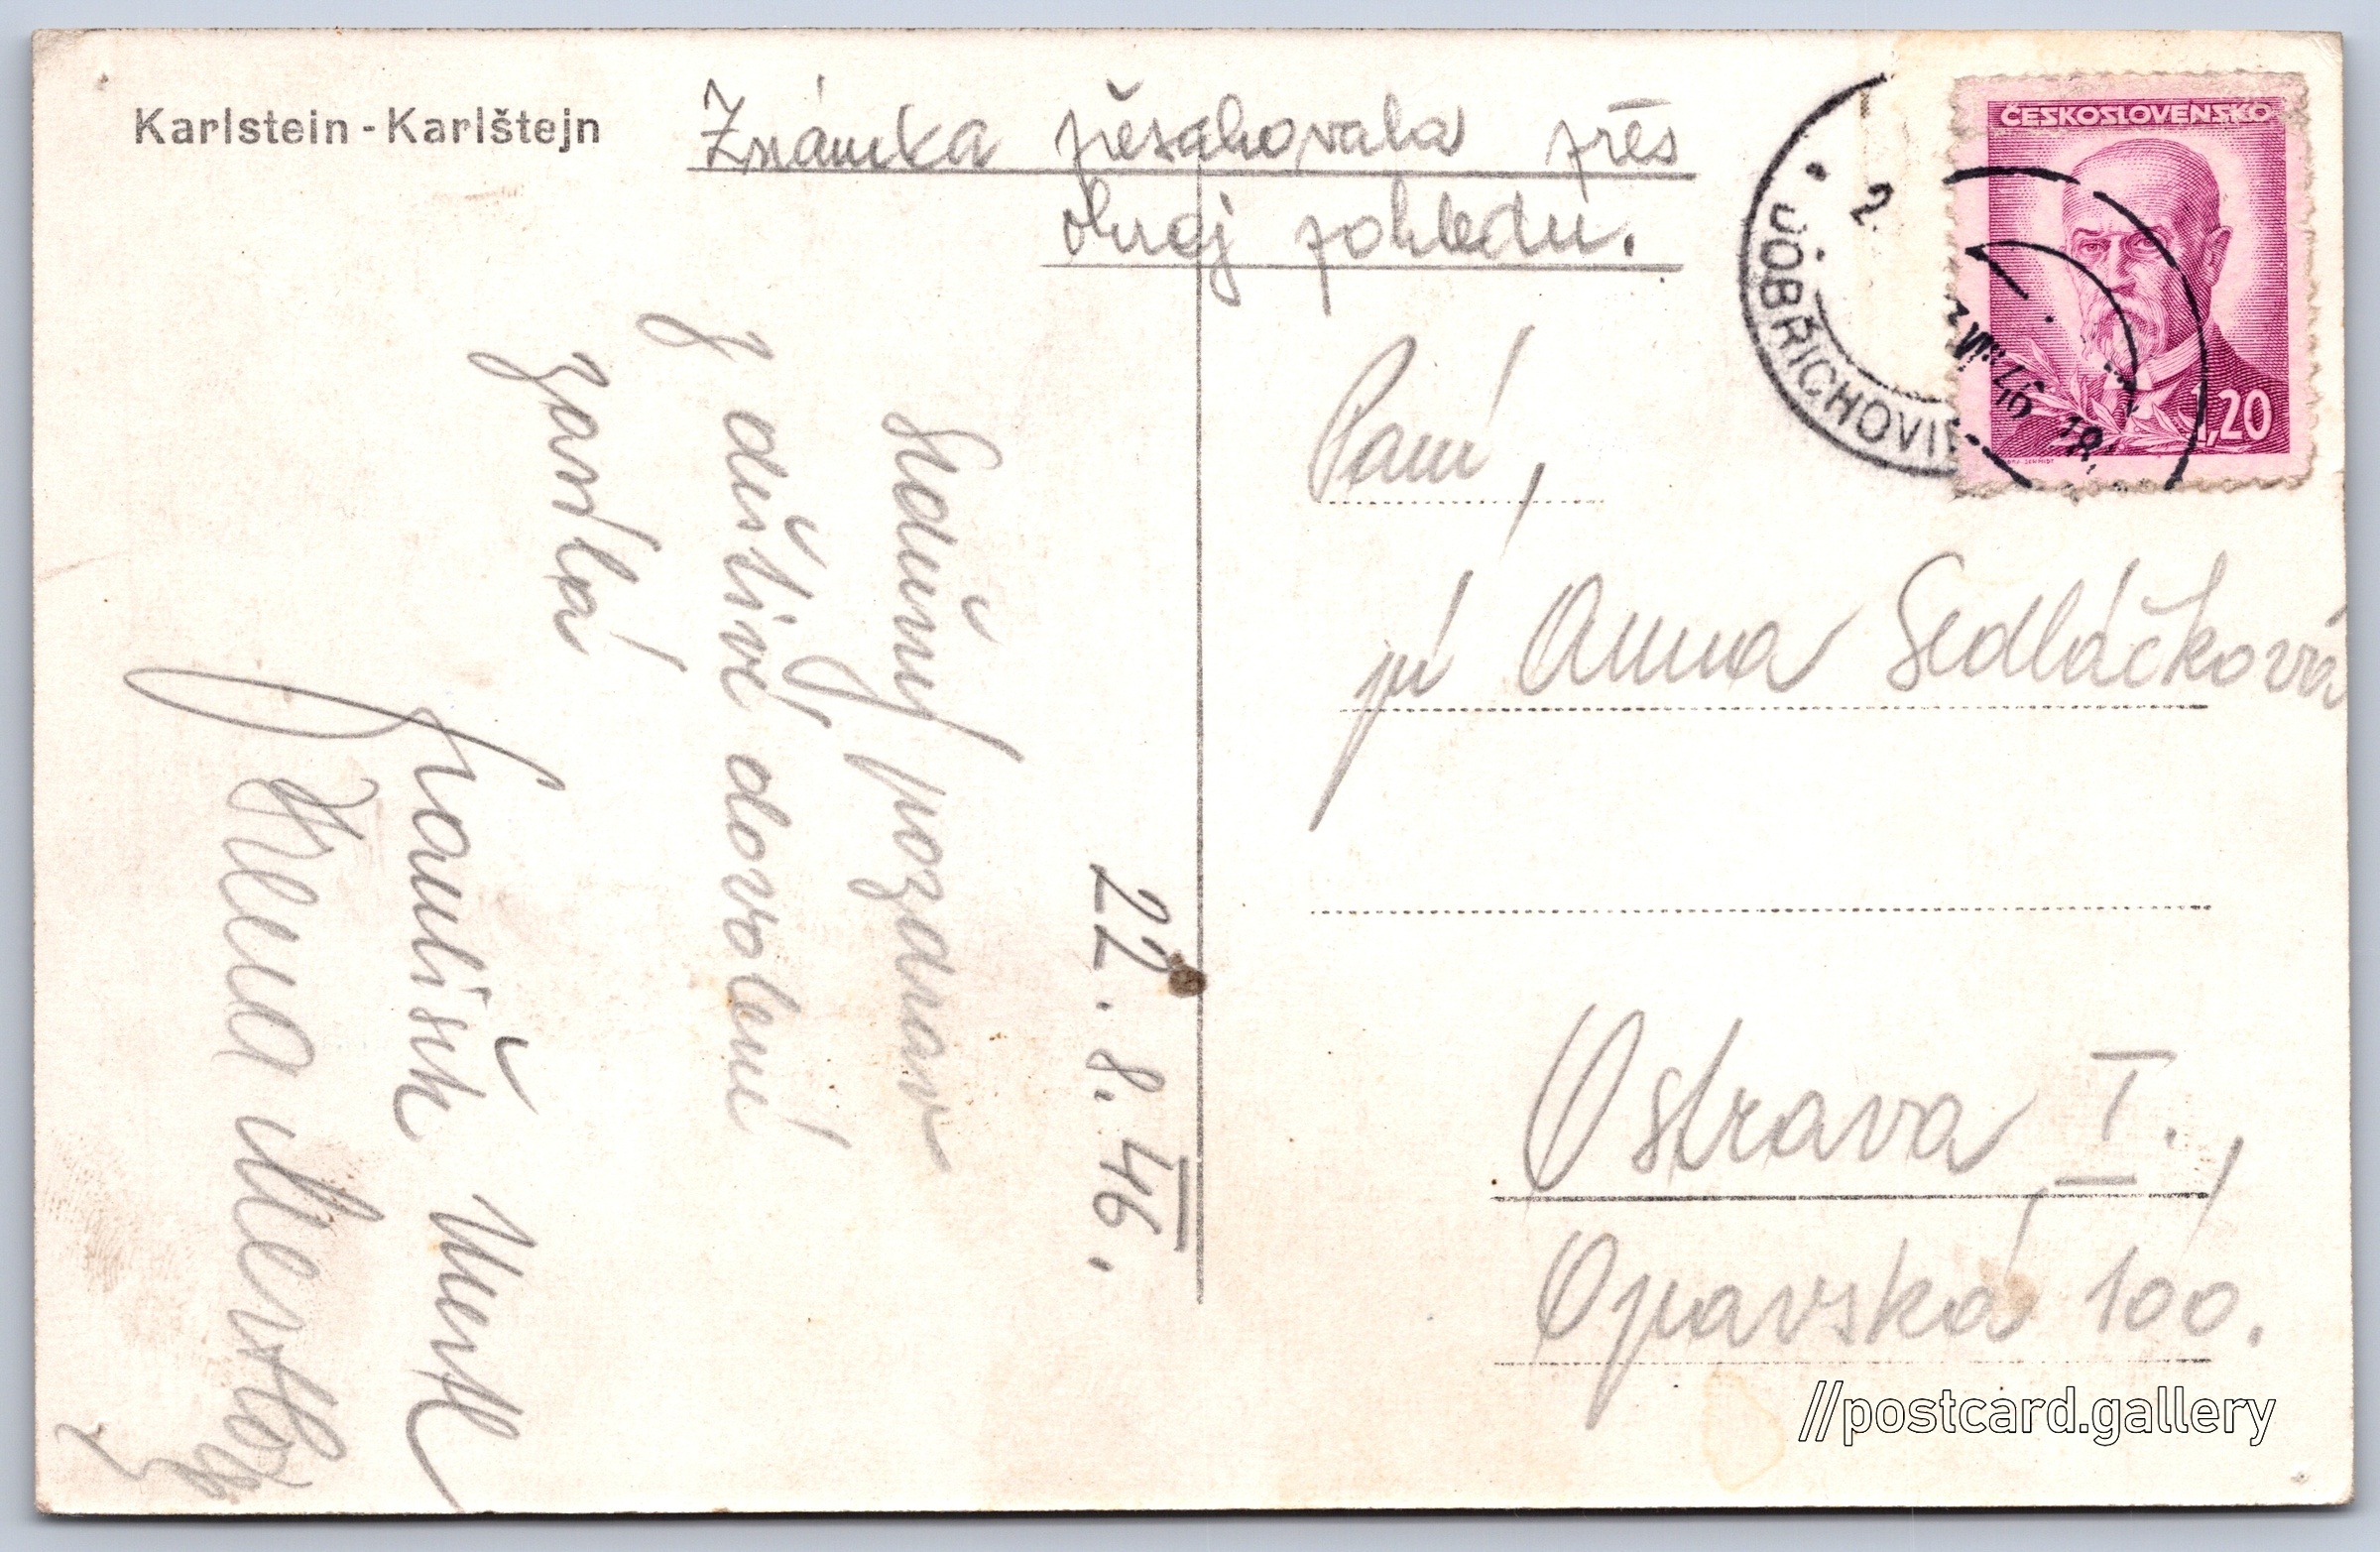 Karlstein - Karlštejn
Známka přesahovala přes
okraj pohledu.
ČESKOSLOVENSKO
1,20
2
DOBŘICHOVI
Paní,
pí Anna Sedláčková
Ostrava I.,
Opavská 100.
22. 8. 46.
Srdečný pozdrav
z deštivé dovolené
zasílá
František
//postcard.gallery